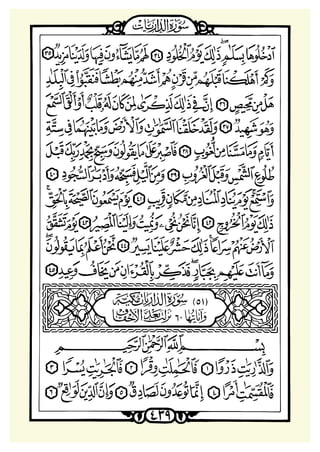 سُورَةُ الذَّارِيَاتِ
ٱدۡخُلُوهَا بِسَلَٰمٖۖ ذَٰلِكَ يَوۡمُ ٱلۡخُلُودِ ٣٤ لَهُم مَّا يَشَآءُونَ فِيهَا وَلَدَيۡنَا مَزِيدٞ ٣٥
وَكَمۡ أَهۡلَكۡنَا قَبۡلَهُم مِّن قَرۡنٍ هُمۡ أَشَدُّ مِنۡهُم بَطۡشٗا فَنَقَّبُواْ فِي ٱلۡبِلَٰدِ
هَلۡ مِن مَّحِيصٍ ٣٦ إِنَّ فِي ذَٰلِكَ لَذِكۡرَىٰ لِمَن كَانَ لَهُۥ قَلۡبٌ أَوۡ أَلۡقَى ٱلسَّمۡعَ
وَهُوَ شَهِيدٞ ٣٧ وَلَقَدۡ خَلَقۡنَا ٱلسَّمَٰوَٰتِ وَٱلۡأَرۡضَ وَمَا بَيۡنَهُمَا فِي سِتَّةِ
أَيَّامٖ وَمَا مَسَّنَا مِن لُّغُوبٖ ٣٨ فَٱصۡبِرۡ عَلَىٰ مَا يَقُولُونَ وَسَبِّحۡ بِحَمۡدِ رَبِّكَ قَبۡلَ
طُلُوعِ ٱلشَّمۡسِ وَقَبۡلَ ٱلۡغُرُوبِ ٣٩ وَمِنَ ٱلَّيۡلِ فَسَبِّحۡهُ وَأَدۡبَٰرَ ٱلسُّجُودِ ٤٠
وَٱسۡتَمِعۡ يَوۡمَ يُنَادِ ٱلۡمُنَادِ مِن مَّكَانٖ قَرِيبٖ ٤١ يَوۡمَ يَسۡمَعُونَ ٱلصَّيۡحَةَ بِٱلۡحَقِّۚ
ذَٰلِكَ يَوۡمُ ٱلۡخُرُوجِ ٤٢ إِنَّا نَحۡنُ نُحۡيِۦ وَنُمِيتُ وَإِلَيۡنَا ٱلۡمَصِيرُ ٤٣ يَوۡمَ تَشَقَّقُ
ٱلۡأَرۡضُ عَنۡهُمۡ سِرَاعٗاۚ ذَٰلِكَ حَشۡرٌ عَلَيۡنَا يَسِيرٞ ٤٤ نَّحۡنُ أَعۡلَمُ بِمَا يَقُولُونَۖ
وَمَآ أَنتَ عَلَيۡهِم بِجَبَّارٖۖ فَذَكِّرۡ بِٱلۡقُرۡءَانِ مَن يَخَافُ وَعِيدِ ٤٥
(٥١) سُورَةُ الذَّارِيَاتِ مَكِّيَّة
وَآيَاتُهَا ٦٠ نَزَلَتْ بَعْدَ الأَحْقَافِ
بِسۡمِ ٱللَّهِ ٱلرَّحۡمَٰنِ ٱلرَّحِيمِ
وَٱلذَّٰرِيَٰتِ ذَرۡوٗا ١ فَٱلۡحَٰمِلَٰتِ وِقۡرٗا ٢ فَٱلۡجَٰرِيَٰتِ يُسۡرٗا ٣
فَٱلۡمُقَسِّمَٰتِ أَمۡرًا ٤ إِنَّمَا تُوعَدُونَ لَصَادِقٞ ٥ وَإِنَّ ٱلدِّينَ لَوَٰقِعٞ ٦
٤٣٩